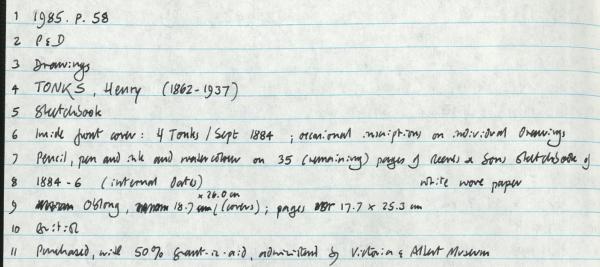 1 1985. P. 58
2 P & D
3 Drawings
4 TONKS, Henry (1862-1937)
5 Sketchbook
6 Inside front cover: 4 Tonks / Sept 1884 ; occasional inscriptions on individual drawings
7 Pencil, pen and ink and watercolour on 35 (remaining) pages of Reeves & Sons Sketchbook of
white wove paper
8 1884-6 (internal dates)
9 Oblong, 18.7 x 26.0 cm (covers); pages 17.7 x 25.3 cm
10 British
11 Purchased, with 50% grant-in-aid, administered by Victoria & Albert Museum